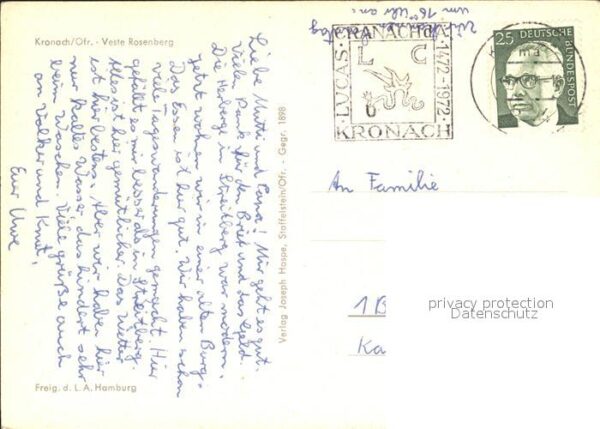 Kronach/Ofr. - Veste Rosenberg
Liebe Mutti und Papa! Mir geht es gut.
Vielen Dank für den Brief und das Geld.
Die Herberge in Streitberg war modern.
Jetzt wohnen wir in einer alten Burg.
Das Essen ist hier gut. Wir haben schon
viele Tageswanderungen gemacht. Hier
gefällt es mir besser als in Streitberg.
Alles ist hier gemütlicher. Das Wetter
ist hier bestens. Aber wir haben hier
nur kaltes Wasser, das hindert sehr
beim Waschen. Viele Grüße auch
an Volker und Knut,
Euer Uwe
Freig. d. L. A. Hamburg
Verlag Joseph Haspe, Staffelstein/Ofr. - Gegr. 1898
um 16 Uhr an.
LUCAS · CRANACH d.Ä. · 1472-1972 ·
L C
KRONACH
25
DEUTSCHE BUNDESPOST
An Familie
1 B
Ka
privacy protection
Datenschutz